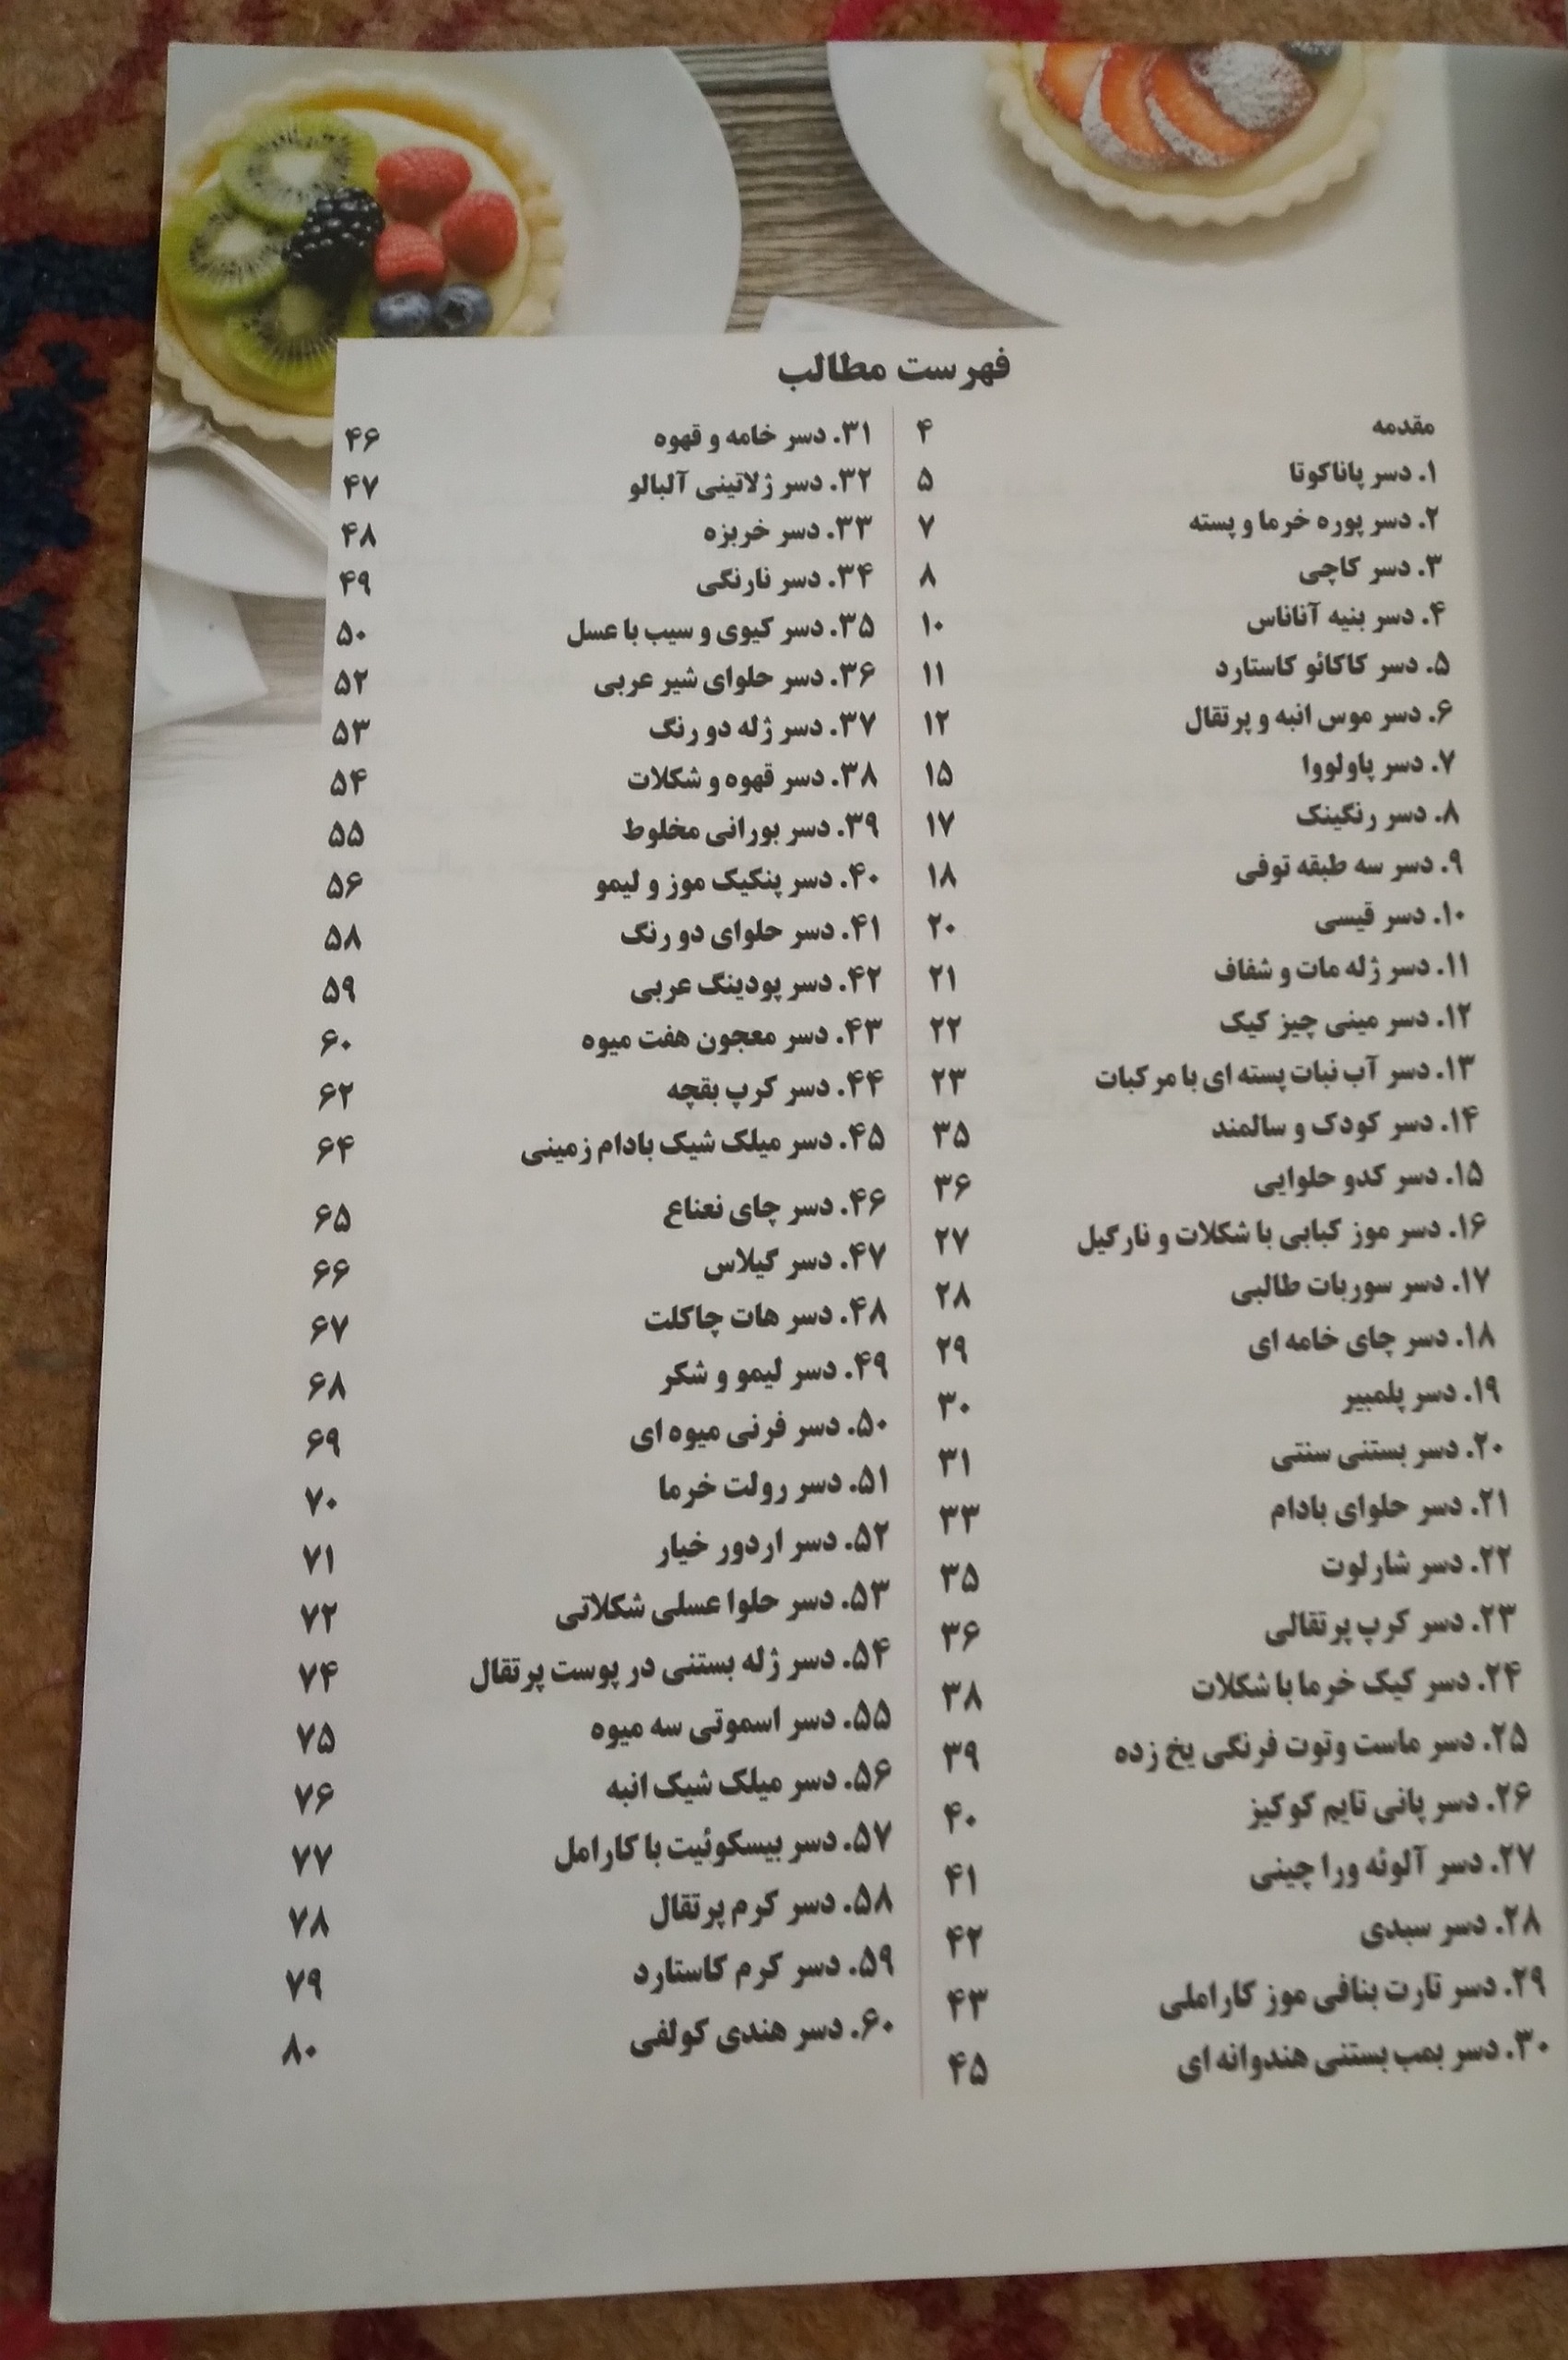 فهرست مطالب
مقدمه ۴
۱. دسر پاناکوتا ۵
۲. دسر پوره خرما و پسته ۷
۳. دسر کاچی ۸
۴. دسر بنیه آناناس ۱۰
۵. دسر کاکائو کاستارد ۱۱
۶. دسر موس انبه و پرتقال ۱۲
۷. دسر پاولووا ۱۵
۸. دسر رنگینک ۱۷
۹. دسر سه طبقه توفی ۱۸
۱۰. دسر قیسی ۲۰
۱۱. دسر ژله مات و شفاف ۲۱
۱۲. دسر مینی چیز کیک ۲۲
۱۳. دسر آب نبات پسته ای با مرکبات ۲۳
۱۴. دسر کودک و سالمند ۳۵
۱۵. دسر کدو حلوایی ۳۶
۱۶. دسر موز کبابی با شکلات و نارگیل ۲۷
۱۷. دسر سوربات طالبی ۲۸
۱۸. دسر چای خامه ای ۲۹
۱۹. دسر پلمبیر ۳۰
۲۰. دسر بستنی سنتی ۳۱
۲۱. دسر حلوای بادام ۳۳
۲۲. دسر شارلوت ۳۵
۲۳. دسر کرپ پرتقالی ۳۶
۲۴. دسر کیک خرما با شکلات ۳۸
۲۵. دسر ماست وتوت فرنگی یخ زده ۳۹
۲۶. دسر پانی تایم کوکیز ۴۰
۲۷. دسر آلوئه ورا چینی ۴۱
۲۸. دسر سبدی ۴۲
۲۹. دسر تارت بنافی موز کاراملی ۴۳
۳۰. دسر بمب بستنی هندوانه ای ۴۵
۳۱. دسر خامه و قهوه ۴۶
۳۲. دسر ژلاتینی آلبالو ۴۷
۳۳. دسر خربزه ۴۸
۳۴. دسر نارنگی ۴۹
۳۵. دسر کیوی و سیب با عسل ۵۰
۳۶. دسر حلوای شیر عربی ۵۲
۳۷. دسر ژله دو رنگ ۵۳
۳۸. دسر قهوه و شکلات ۵۴
۳۹. دسر بورانی مخلوط ۵۵
۴۰. دسر پنکیک موز و لیمو ۵۶
۴۱. دسر حلوای دو رنگ ۵۸
۴۲. دسر پودینگ عربی ۵۹
۴۳. دسر معجون هفت میوه ۶۰
۴۴. دسر کرپ بقچه ۶۲
۴۵. دسر میلک شیک بادام زمینی ۶۴
۴۶. دسر چای نعناع ۶۵
۴۷. دسر گیلاس ۶۶
۴۸. دسر هات چاکلت ۶۷
۴۹. دسر لیمو و شکر ۶۸
۵۰. دسر فرنی میوه ای ۶۹
۵۱. دسر رولت خرما ۷۰
۵۲. دسر اردور خیار ۷۱
۵۳. دسر حلوا عسلی شکلاتی ۷۲
۵۴. دسر ژله بستنی در پوست پرتقال ۷۴
۵۵. دسر اسموتی سه میوه ۷۵
۵۶. دسر میلک شیک انبه ۷۶
۵۷. دسر بیسکوئیت با کارامل ۷۷
۵۸. دسر کرم پرتقال ۷۸
۵۹. دسر کرم کاستارد ۷۹
۶۰. دسر هندی کولفی ۸۰